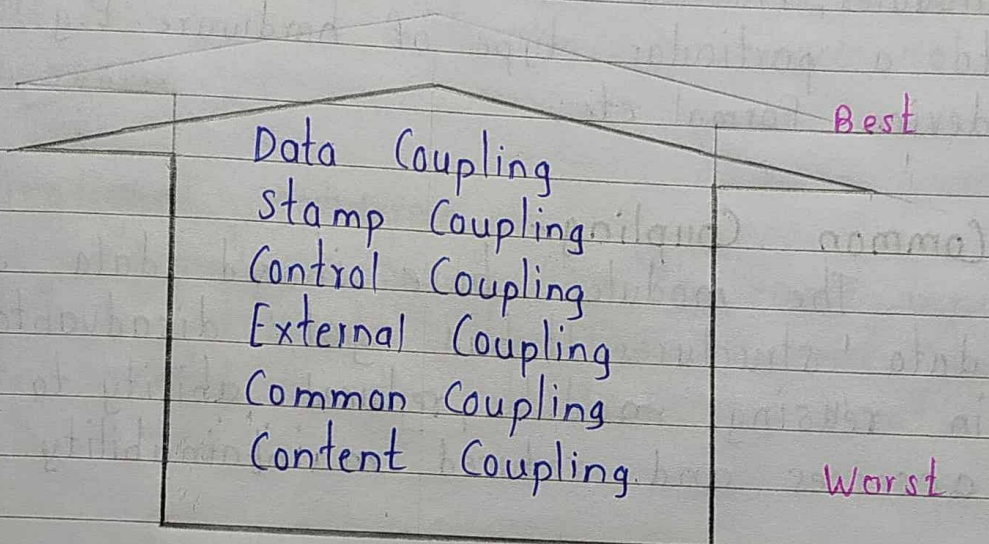 Best
Data Coupling
Stamp Coupling
Control Coupling
External Coupling
Common Coupling
Content Coupling.
Worst